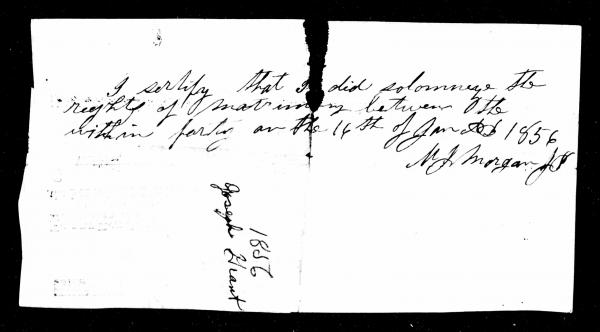 I sertify that I did solomneze the
rights of matrimony between the
within party on the 16th of Jan 1856
N. J. Morgan J.P.
1856
Joseph Grant